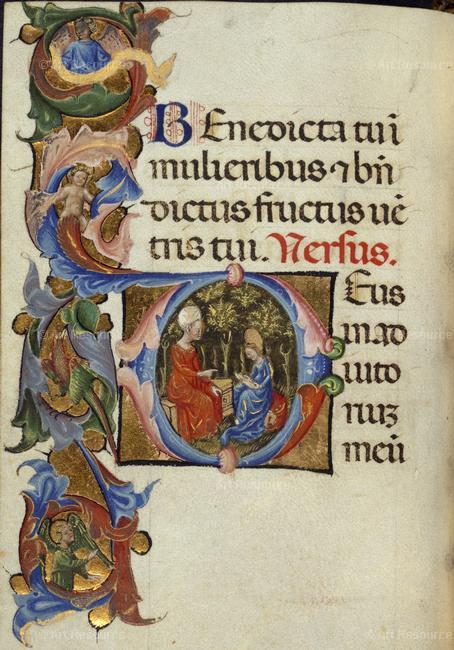 Benedicta tu i
mulieribus ⁊ bn̄
dictus fructus uē
tris tui. Versus.
Deus
in ad
iuto
riuz
meū
© Art Resource